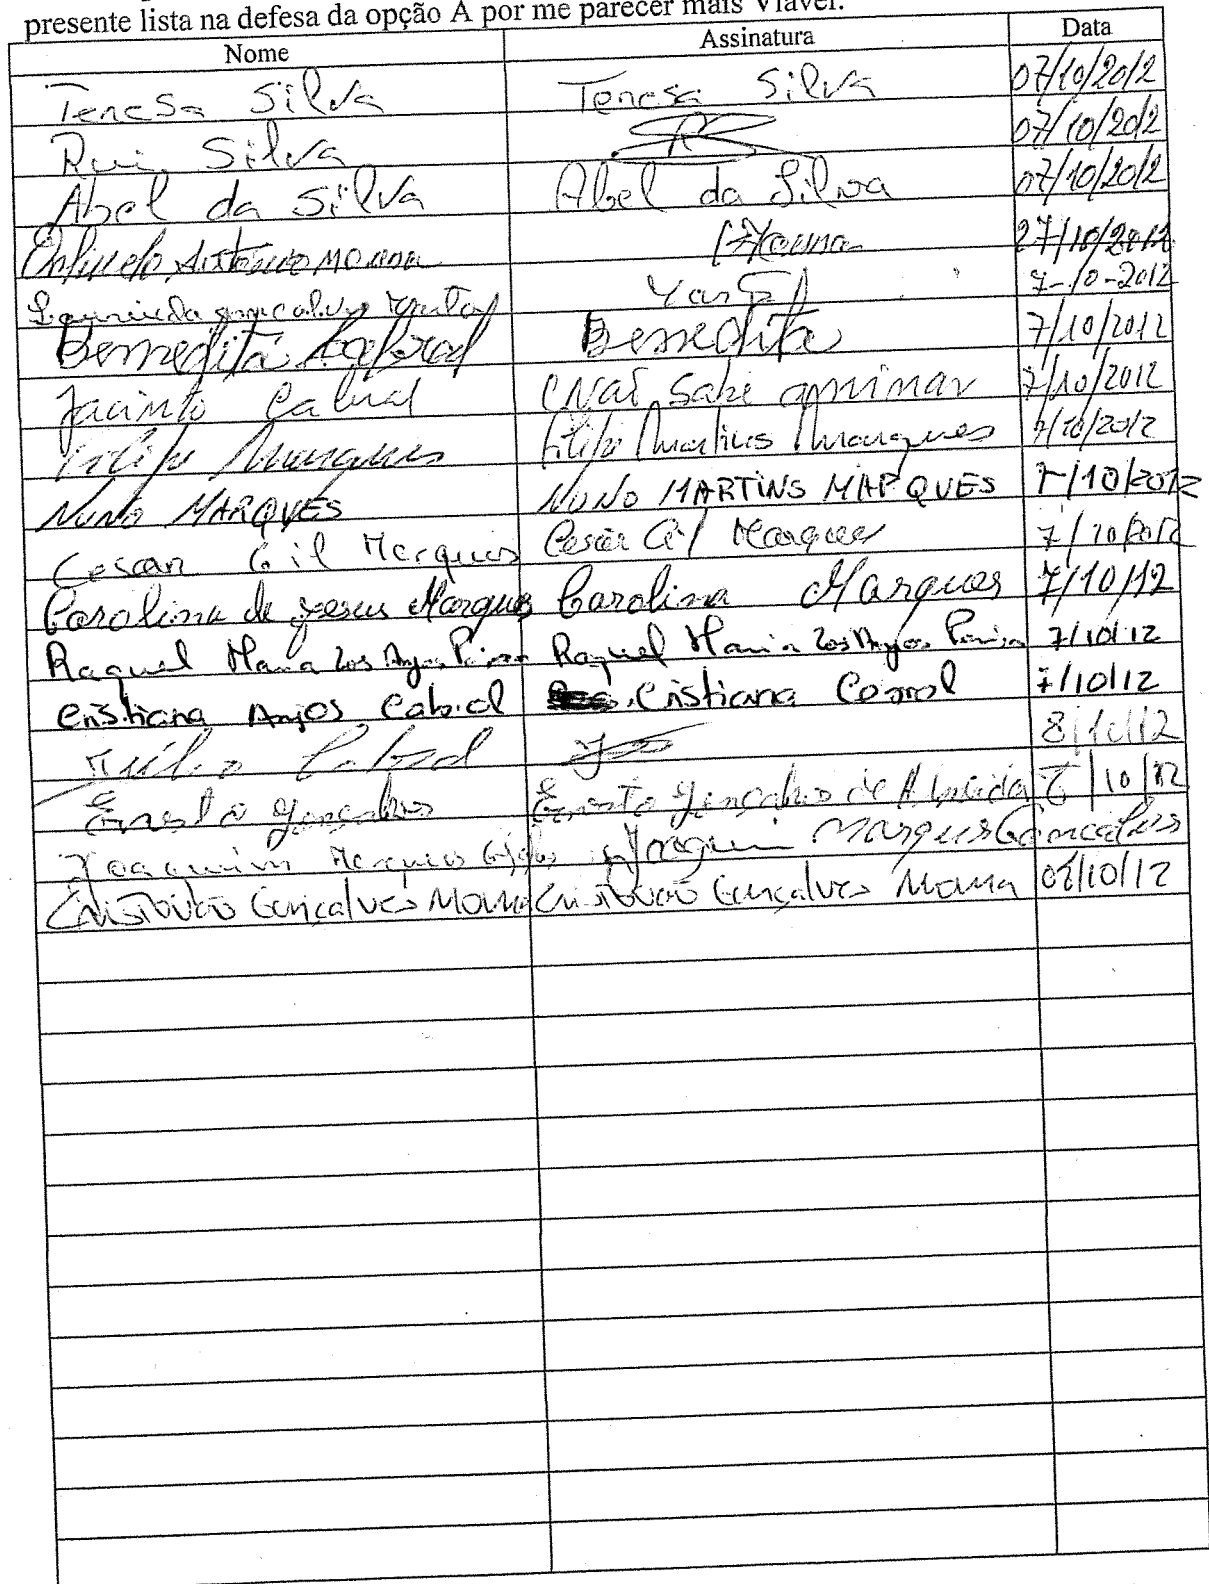 presente lista na defesa da opção A por me parecer mais Viável.
Nome Assinatura Data
Teresa Silva Teresa Silva 07/10/2012
Rui Silva 07/10/2012
Abel da Silva Abel da Silva 07/10/2012
António Moura Moura 27/10/2012
7-10-2012
Bemedita Cabral Bemedita 7/10/2012
Jacinto Cabral Não Sabe assinar 7/10/2012
Filipe Marques Filipe Martins Marques 7/10/2012
NUNO MARQUES NUNO MARTINS MARQUES 7/10/2012
Cesar Gil Marques Cesár Gil Marques 7/10/2012
Carolina de Jesus Marques Carolina Marques 7/10/12
Raquel Maria dos Anjos Raquel Maria dos Anjos 7/10/12
Cristiana Anjos Cabral Cristiana Cabral 7/10/12
Túlio Cabral 8/10/12
Ernesto Gonçalves Ernesto Gonçalves de Almeida /10/12
Joaquim Marques Joaquim Marques Goncalves
Cristovão Gonçalves Moura Cristovão Gonçalves Moura 08/10/12